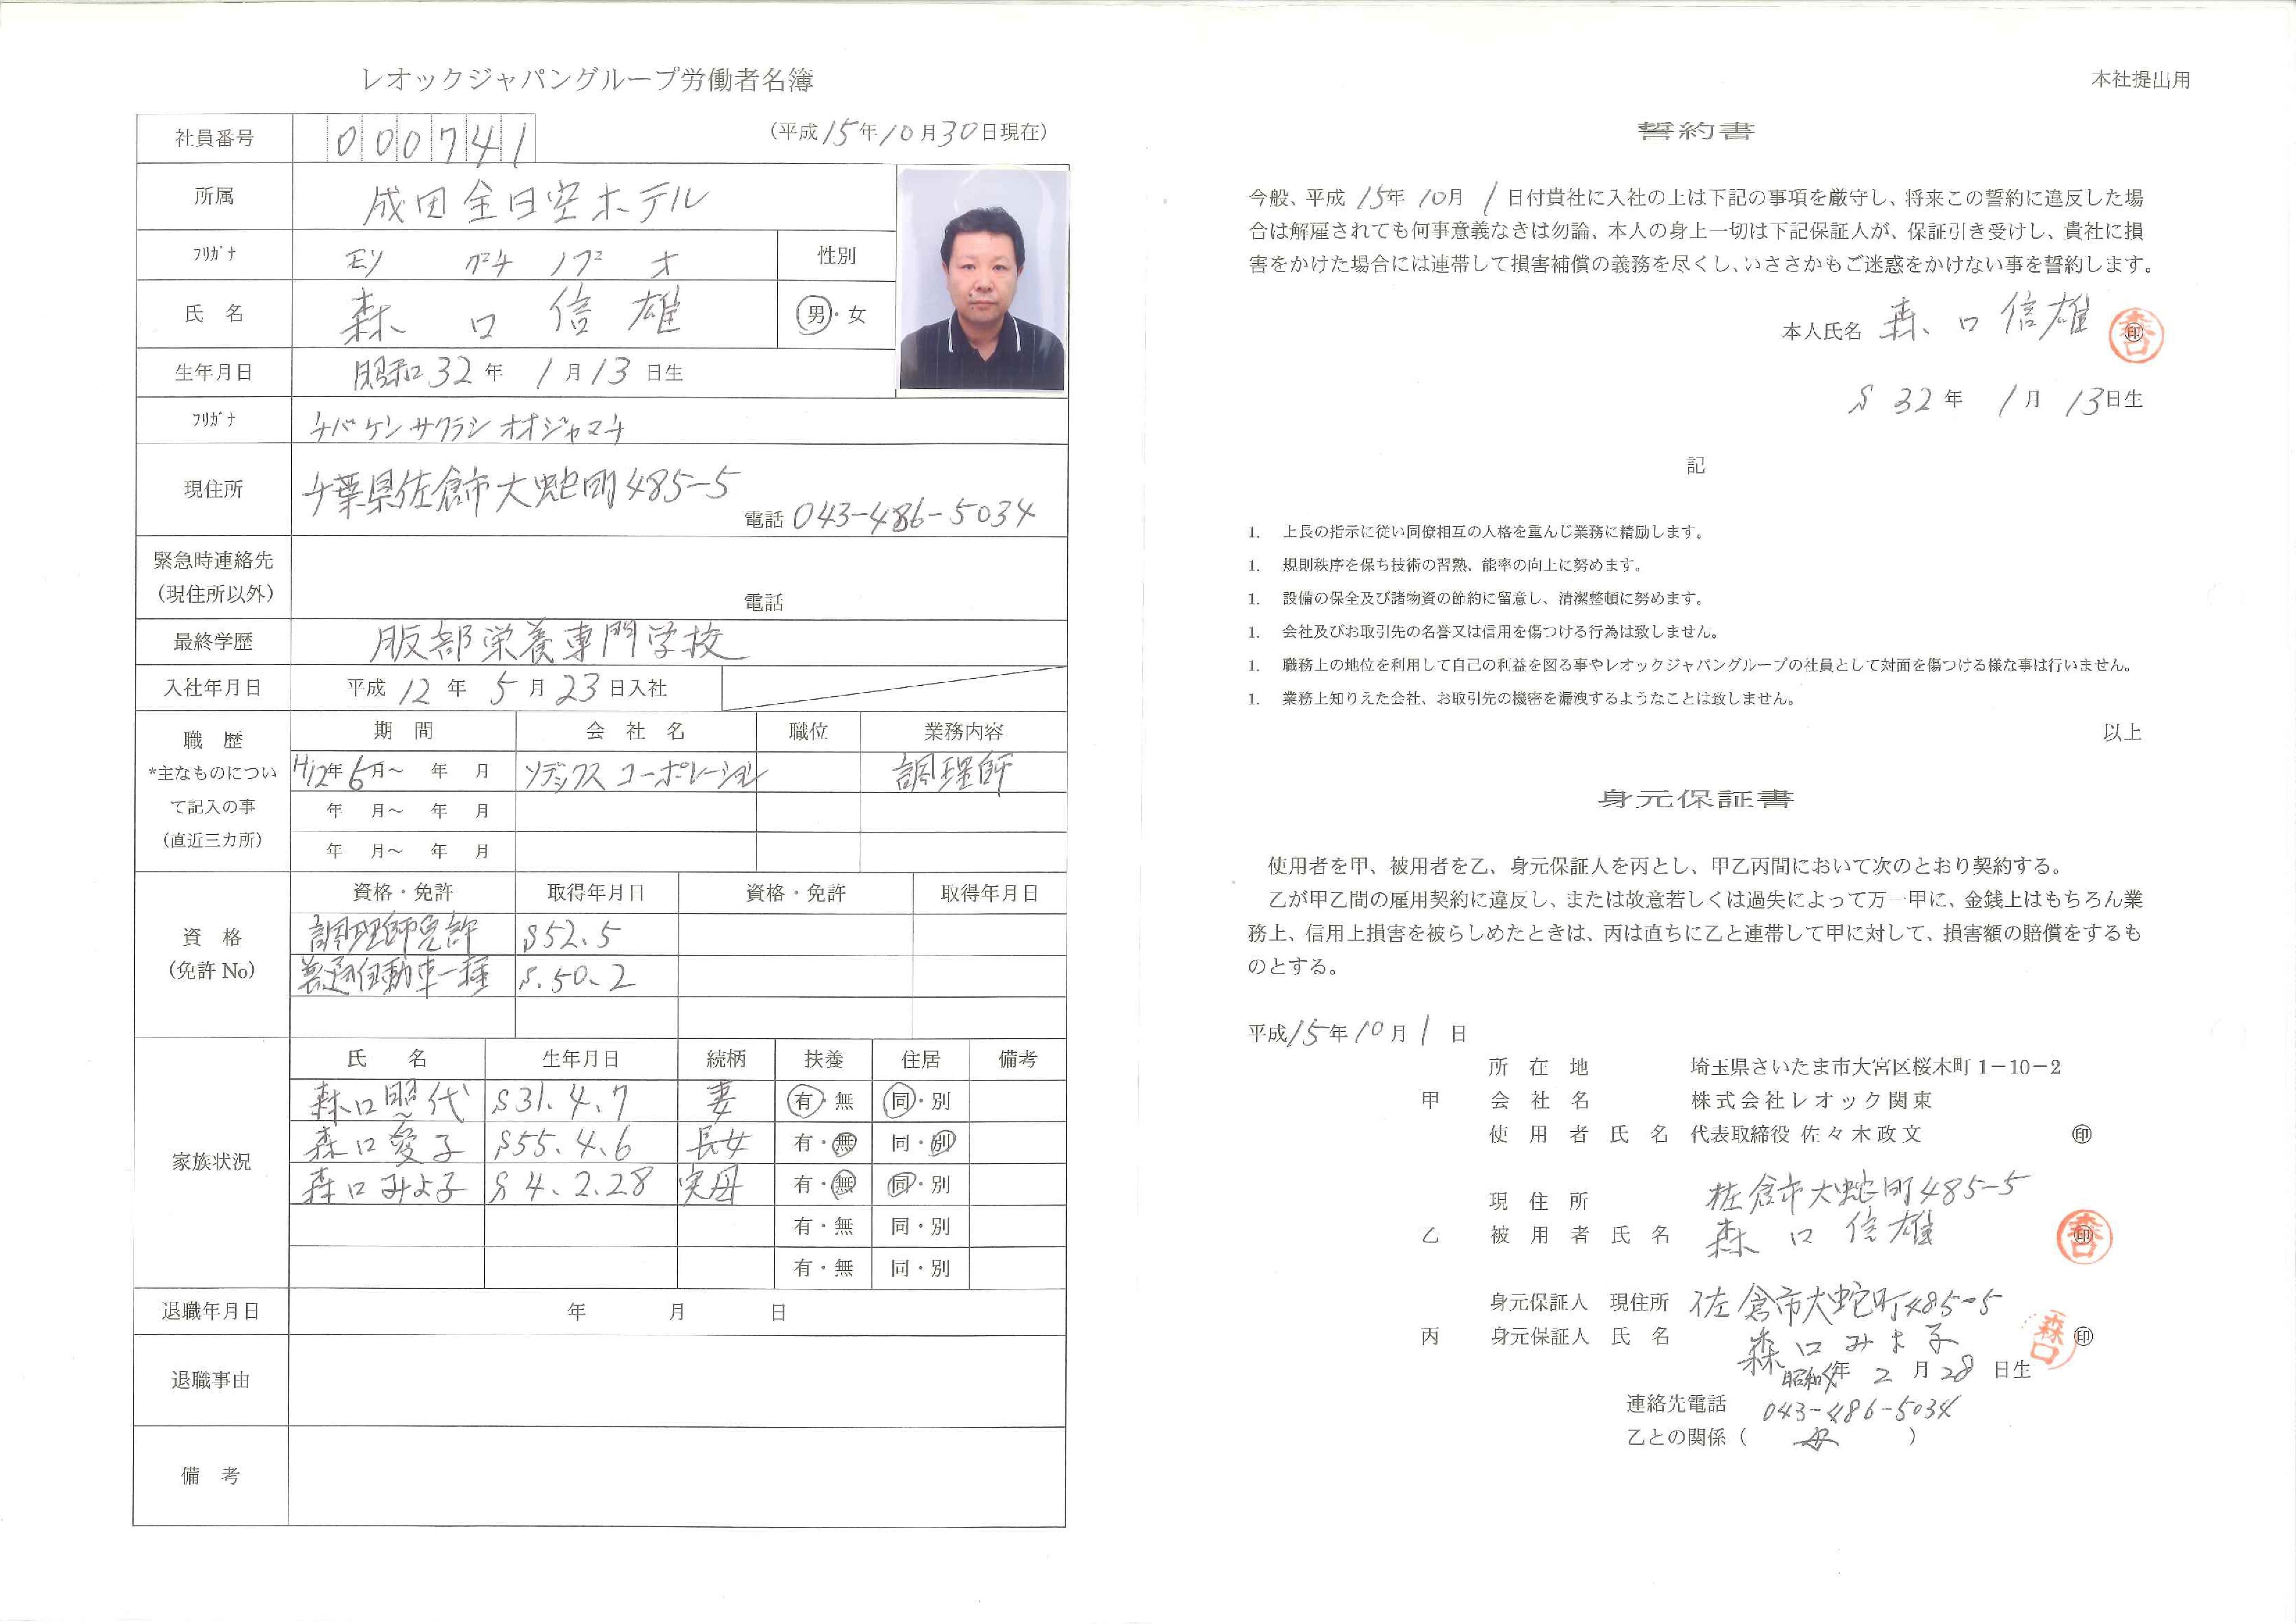 レオックジャパングループ労働者名簿
社員番号 000741 (平成15年10月30日現在)
所属 成田全日空ホテル
フリガナ モリ グチ ノブ オ 性別
氏 名 森 口 信 雄 男・女
生年月日 昭和32年 1月13日生
フリガナ チバケンサクラシオオジャマチ
現住所 千葉県佐倉市大蛇町485-5
電話 043-486-5034
緊急時連絡先
(現住所以外) 電話
最終学歴 服部栄養専門学校
入社年月日 平成 12 年 5 月 23 日入社
職 歴 期 間 会 社 名 職位 業務内容
*主なものについ H12年6月～ 年 月 ソデックスコーポレーション 調理師
て記入の事 年 月～ 年 月
(直近三カ所) 年 月～ 年 月
資格・免許 取得年月日 資格・免許 取得年月日
資 格 調理師免許 S52.5
(免許 No) 普通自動車一種 S.50.2
氏 名 生年月日 続柄 扶養 住居 備考
家族状況
森口照代 S31.4.7 妻 有・無 同・別
森口愛子 S55.4.6 長女 有・無 同・別
森口みよ子 S4.2.28 実母 有・無 同・別
有・無 同・別
有・無 同・別
退職年月日 年 月 日
退職事由
備 考
本社提出用
誓約書
今般、平成 15年 10月 1 日付貴社に入社の上は下記の事項を厳守し、将来この誓約に違反した場
合は解雇されても何事意義なきは勿論、本人の身上一切は下記保証人が、保証引き受けし、貴社に損
害をかけた場合には連帯して損害補償の義務を尽くし、いささかもご迷惑をかけない事を誓約します。
本人氏名 森 口 信雄 印 森口
S 32 年 1 月 13日生
記
1. 上長の指示に従い同僚相互の人格を重んじ業務に精励します。
1. 規則秩序を保ち技術の習熟、能率の向上に努めます。
1. 設備の保全及び諸物資の節約に留意し、清潔整頓に努めます。
1. 会社及びお取引先の名誉又は信用を傷つける行為は致しません。
1. 職務上の地位を利用して自己の利益を図る事やレオックジャパングループの社員として対面を傷つける様な事は行いません。
1. 業務上知りえた会社、お取引先の機密を漏洩するようなことは致しません。
以上
身元保証書
使用者を甲、被用者を乙、身元保証人を丙とし、甲乙丙間において次のとおり契約する。
乙が甲乙間の雇用契約に違反し、または故意若しくは過失によって万一甲に、金銭上はもちろん業
務上、信用上損害を被らしめたときは、丙は直ちに乙と連帯して甲に対して、損害額の賠償をするも
のとする。
平成15年10月1 日
所 在 地 埼玉県さいたま市大宮区桜木町1-10-2
甲 会 社 名 株式会社レオック関東
使 用 者 氏 名 代表取締役 佐々木政文 印
現 住 所 佐倉市大蛇町485-5
乙 被 用 者 氏 名 森 口 信雄 印 森口
身元保証人 現住所 佐倉市大蛇町485-5
丙 身元保証人 氏 名 森口みよ子 森口 印
昭和4年 2 月 28 日生
連絡先電話 043-486-5034
乙との関係( 母 )